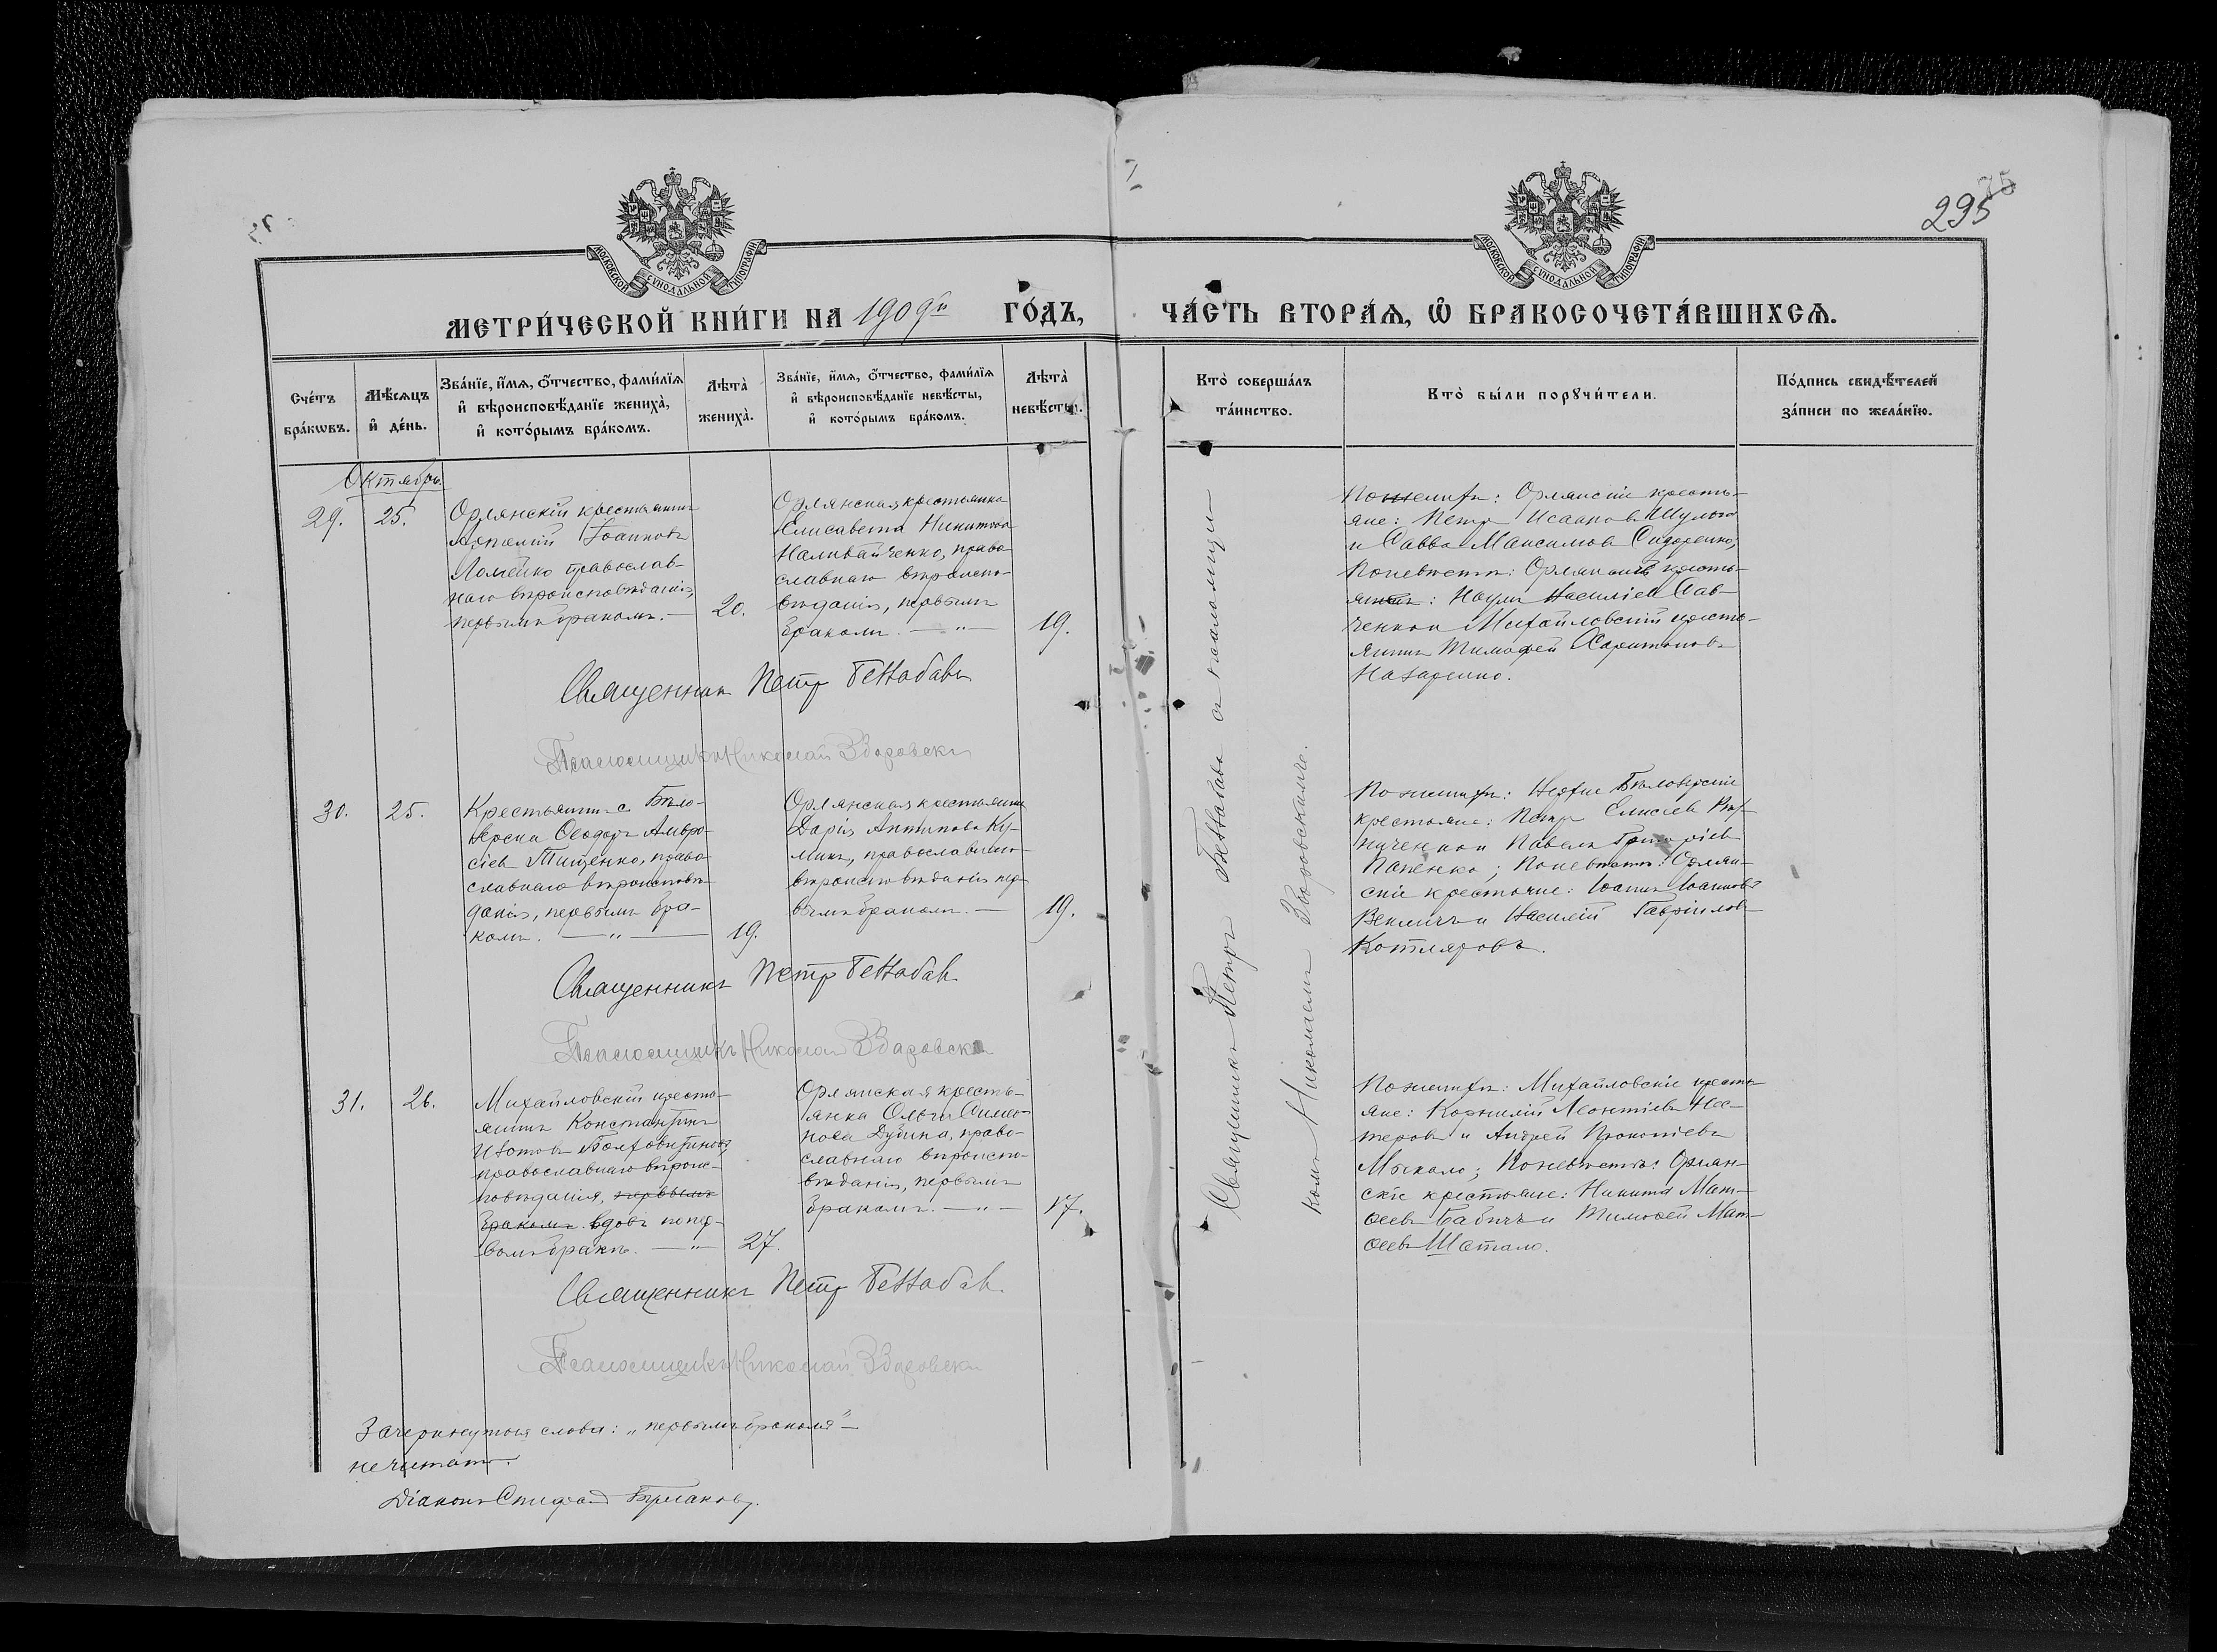 295
МОСКОВСКОЙ СѴНОДАЛЬНОЙ ТИПОГРАФІИ
МОСКОВСКОЙ СѴНОДАЛЬНОЙ ТИПОГРАФІИ
МЕТРИ́ЧЕСКОЙ КНИ́ГИ НА 1909й ГО́ДЪ, ЧА́СТЬ ВТОРА́Ѧ, Ѽ БРАКОСОЧЕТА́ВШИХСѦ.
Сче́тъ бра́кѡвъ.
Мѣ́сѧцъ и҆ де́нь.
Зва́нїе, и҆́мѧ, ѻ҆́тчество, фами́лїѧ
и҆ вѣроисповѣ́данїе жениха̀,
и҆ кото́рымъ бра́комъ.
Лѣта̀ жениха̀.
Зва́нїе, и҆́мѧ, ѻ҆́тчество, фами́лїѧ
и҆ вѣроисповѣ́данїе невѣ́сты,
и҆ кото́рымъ бра́комъ.
Лѣта̀ невѣ́сты.
Кто̀ соверша́лъ
та́инство.
Кто̀ бы́ли порꙋчи́тели.
По́дпись свидѣ́телей
за́писи по жела́нїю.
Октябрь.
29.
25.
Орлянскій крестьянинъ
Іоанновъ
Ломейко православ-
наго вѣроисповѣданія,
первымъ бракомъ. —
20.
Орлянская крестьянка
Елисавета Никитова
Наливайченко, право-
славнаго вѣроиспо-
вѣданія, первымъ
бракомъ. — „ —
19.
По женихѣ: Орлянскіе кресть-
яне: Петръ Исааковъ Шульга
и Савва Максимовъ Сидоренко;
По невѣстѣ: Орлянскій кресть-
янинъ: Наумъ Василіевъ Сав-
ченко и Михайловскій кресть-
янинъ Тимофей Харитоновъ
Назаренко.
Священникъ Петръ
Псаломщикъ Николай Здоровскій
30.
25.
Крестьянинъ с. Бѣло-
зерки Ѳеодоръ Амвро-
сіевъ Тищенко, право-
славнаго вѣроисповѣ-
данія, первымъ бра-
комъ. — „ —
19.
Орлянская крестьянка
Дарія Антипова Ку-
ликъ, православнаго
вѣроисповѣданія пер-
вымъ бракомъ. —
19.
По женихѣ: Бѣлозерскіе
крестьяне: Петръ Елисіевъ
и Павелъ Григоріевъ
Папенко; По невѣстѣ: Орлян-
скіе крестьяне: Іоаннъ Іоанновъ
Векличъ и Василій Гавріиловъ
Котляровъ.
Священникъ Петръ
Псаломщикъ Николай Здоровскій
31.
26.
Михайловскій кресть-
янинъ Константинъ
Изотовъ Болховитиновъ,
православнаго вѣроис-
повѣданія, первымъ
бракомъ. вдовъ по пер-
вомъ бракѣ. — „ —
27.
Орлянская кресть-
янка Ольга Симео-
нова Дубина, право-
славнаго вѣроиспо-
вѣданія, первымъ
бракомъ. — „ —
17.
По женихѣ: Михайловскіе кресть-
яне: Корнилій Леонтіевъ Нес-
теровъ и Андрей Прокопіевъ
Мыкало; По невѣстѣ: Орлян-
скіе крестьяне: Никита Мат-
ѳеевъ Бабичъ и Тимоѳей Мат-
ѳеевъ Шатало.
Священникъ Петръ
Псаломщикъ Николай Здоровскій
Священникъ Петръ съ псаломщи-
комъ Николаемъ Здоровскимъ.
Зачеркнутыя слова: „первымъ бракомъ" —
не читать.
Діаконъ